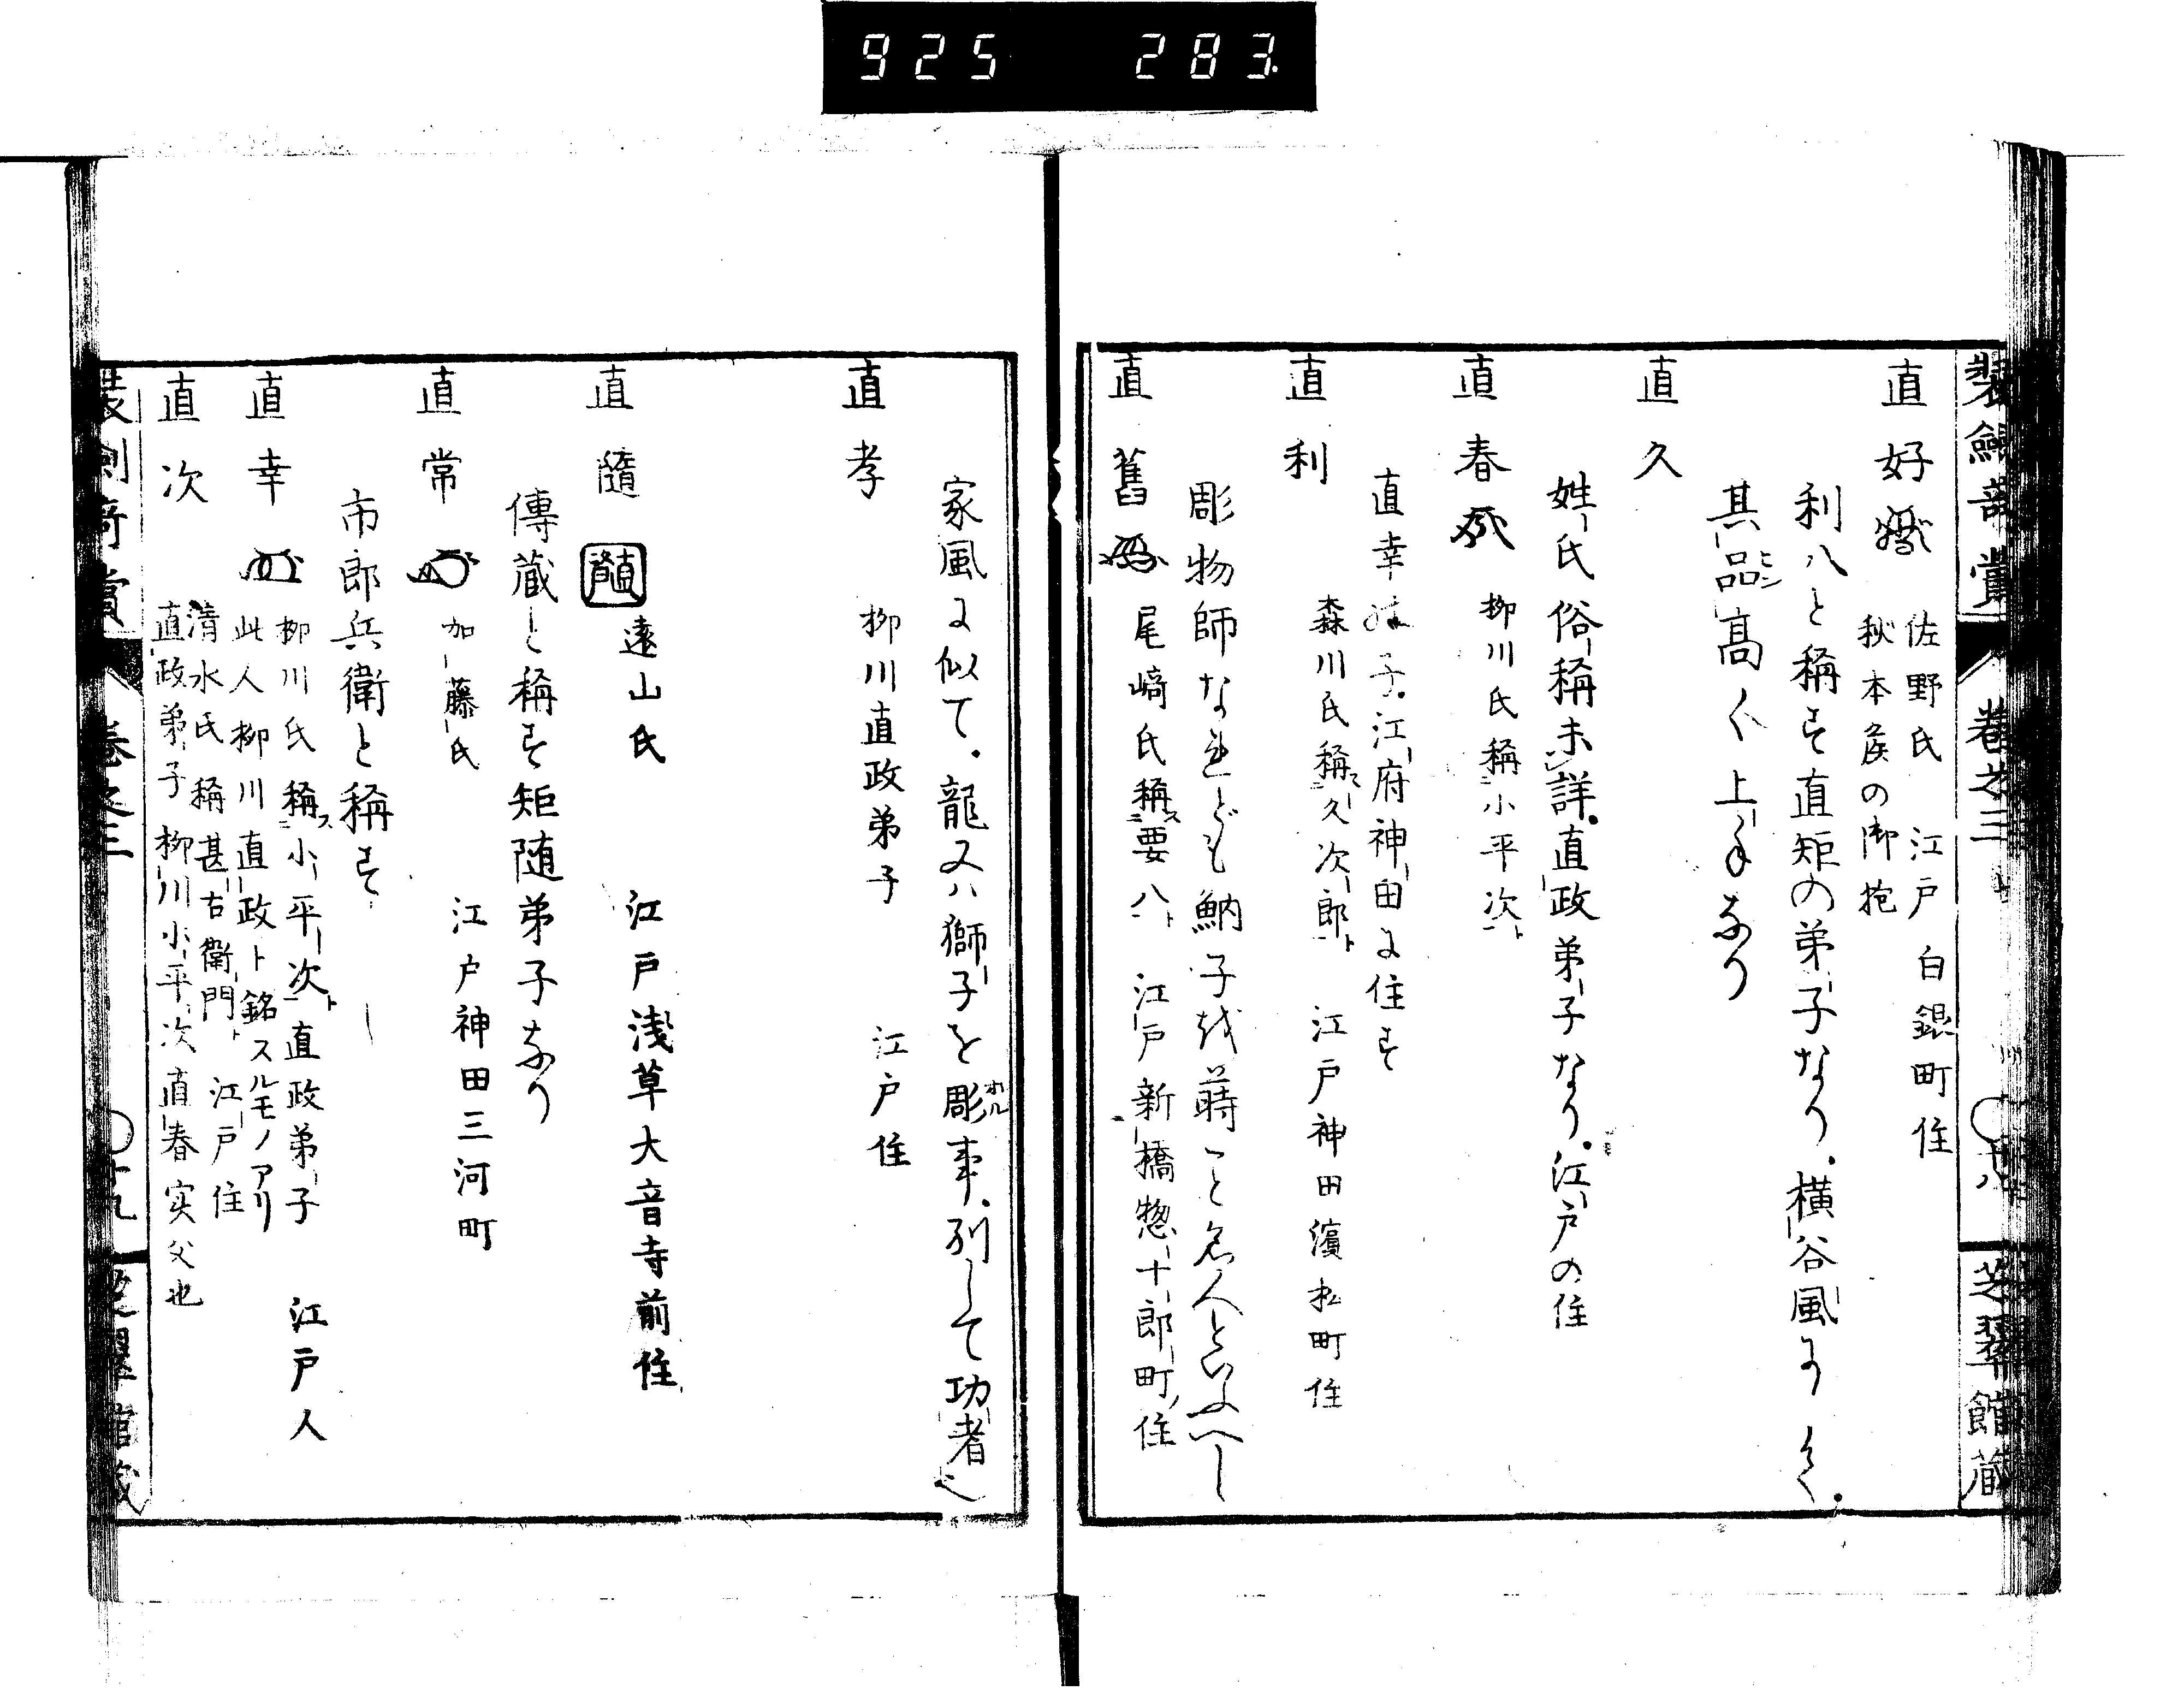 925 283
装劔竒賞 巻之三 十八 芝翠館蔵
直好 佐野氏 江戸白銀町住
秋本侯の御抱
利八と稱す直矩の弟子なり。横谷風にて
其品高く上手なり
直久
姓氏俗稱未詳。直政弟子なり。江戸の住
直春 柳川氏稱小平次ト
直幸の子。江府神田に住す
直利 森川氏稱ス久次郎ト 江戸神田濱松町住
彫物師なれども魶子を蒔こと名人といふへし
直舊 尾﨑氏稱ス要八ト 江戸新橋惣十郎町住
家風に似て。龍又ハ獅子を彫事。別して功者也
直孝 柳川直政弟子 江戸住
直隨 遠山氏 江戸浅草大音寺前住
傳蔵と稱す矩随弟子なり
直常 加藤氏 江戸神田三河町
市郎兵衛と稱す
直幸 柳川氏稱ス小平次ト直政弟子 江戸人
此人柳川直政ト銘スルモノアリ
直次 清水氏稱甚右衛門ト 江戸住
直政弟子柳川小平次直春実父也
装劔竒賞 巻之三 十九 芝翠館蔵